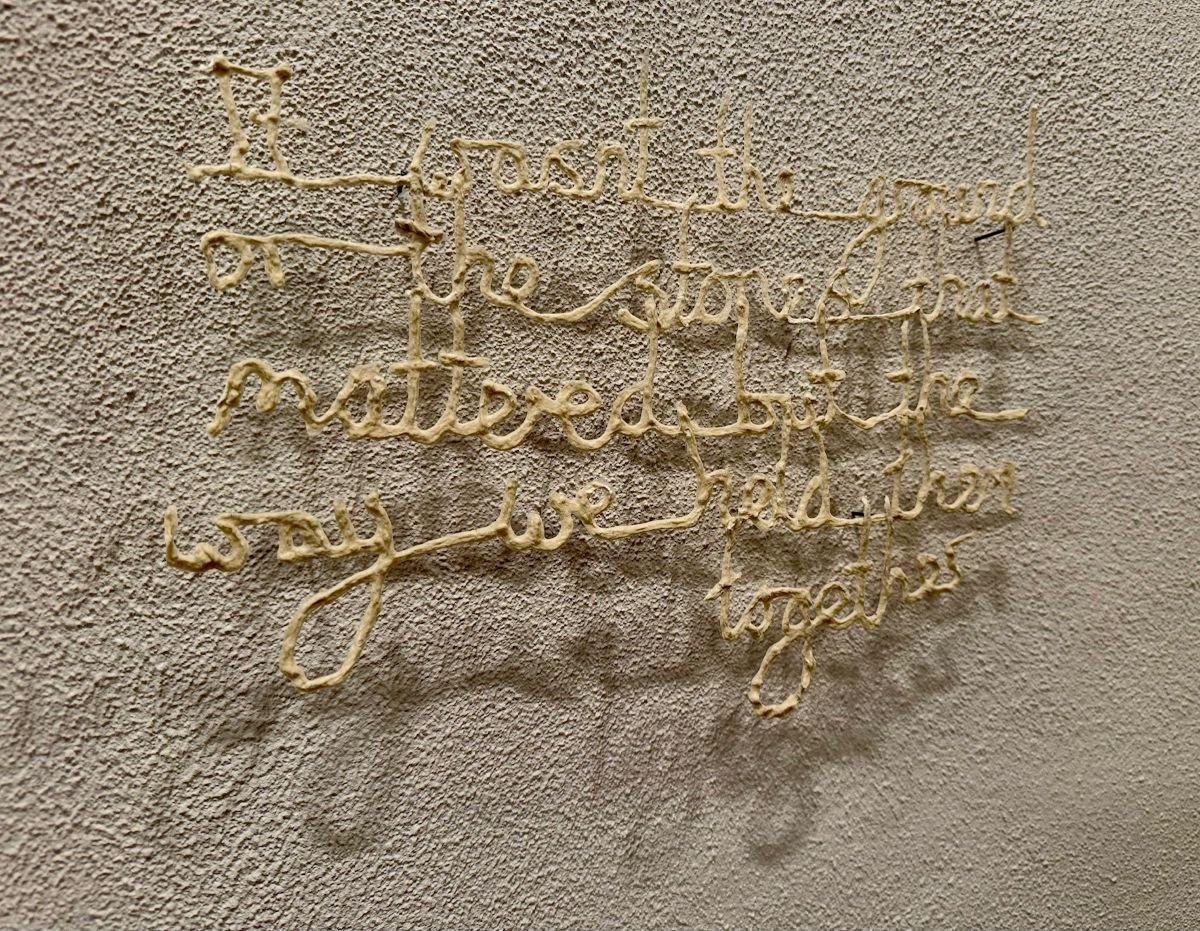 It wasnt the ground
or the stones that
mattered but the
way we held them
together